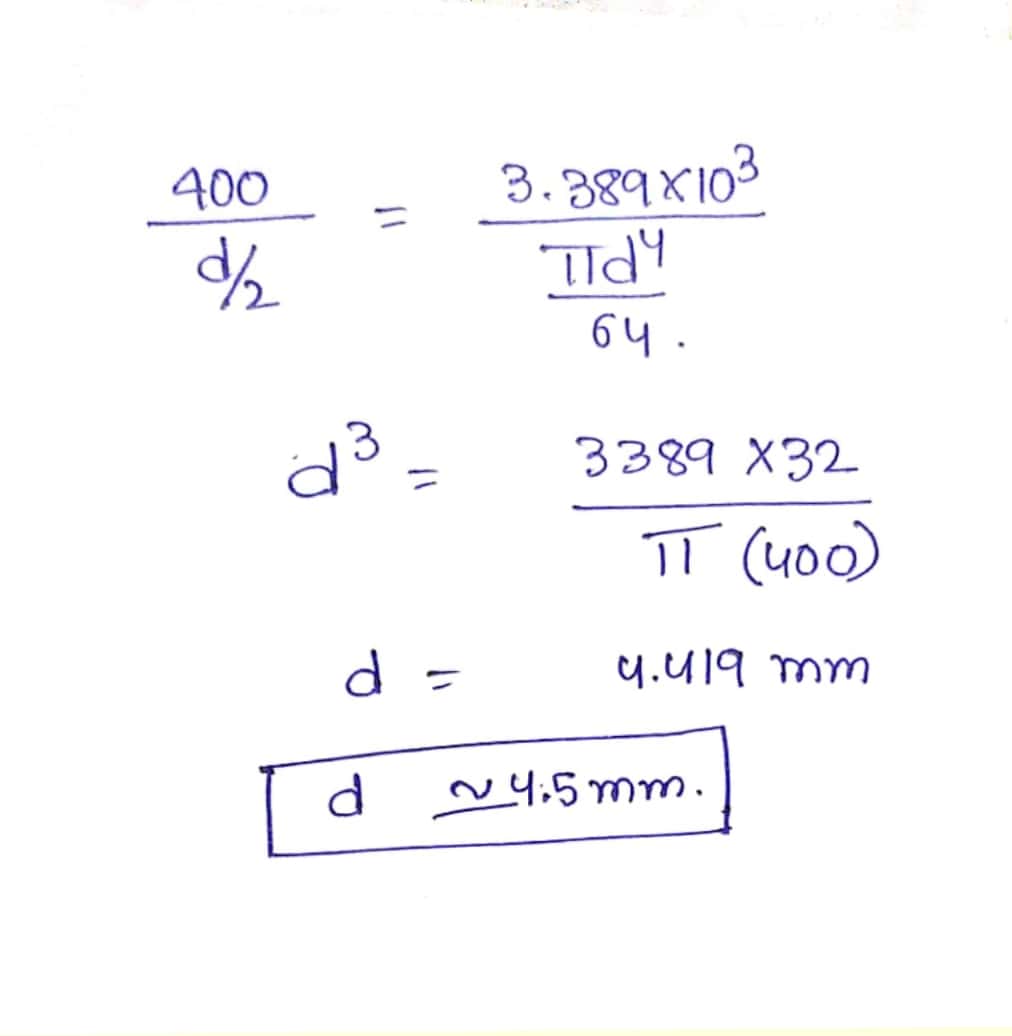 400 = 3.389×10³
d/2 πd⁴
64.
d³ = 3389 ×32
π (400)
d = 4.419 mm
d ≃ 4.5 mm.